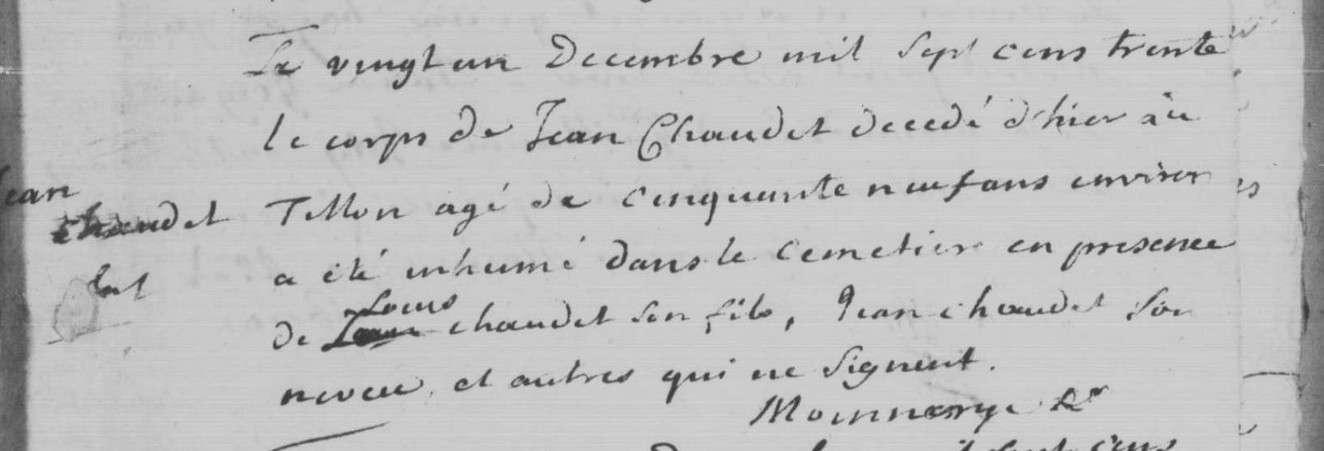 Le vingt un Decembre mil Sept cens trente
le corps de Jean Chaudet decedé d'hier au
Jean
chaudet
Tillon agé de cinquante neuf ans environ
a été inhumé dans le cemetiere en presence
de Louis chaudet son fils, Jean chaudet son
neveu, et autres qui ne signent.